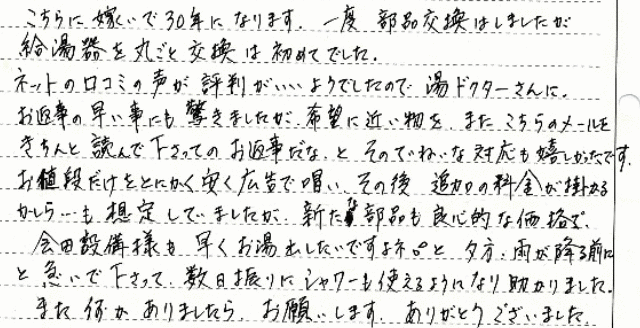 こちらに嫁いで30年になります。一度部品交換はしましたが
給湯器を丸ごと交換は初めてでした。
ネットの口コミの声が評判がいいようでしたので湯ドクターさんに。
お返事の早い事にも驚きましたが、希望に近い物を、またこちらのメールを
きちんと読んで下さってのお返事だな、とそのていねいな対応も嬉しかったです。
お値段だけをとにかく安く広告で唱い、その後追加の料金が掛かる
かしら…も想定していましたが、新たな部品も良心的な価格で、
会田設備様も早くお湯出したいですよネ。と夕方、雨が降る前に
と急いで下さって、数日振りにシャワーも使えるようになり助かりました。
また何かありましたら、お願いします。ありがとうございました。